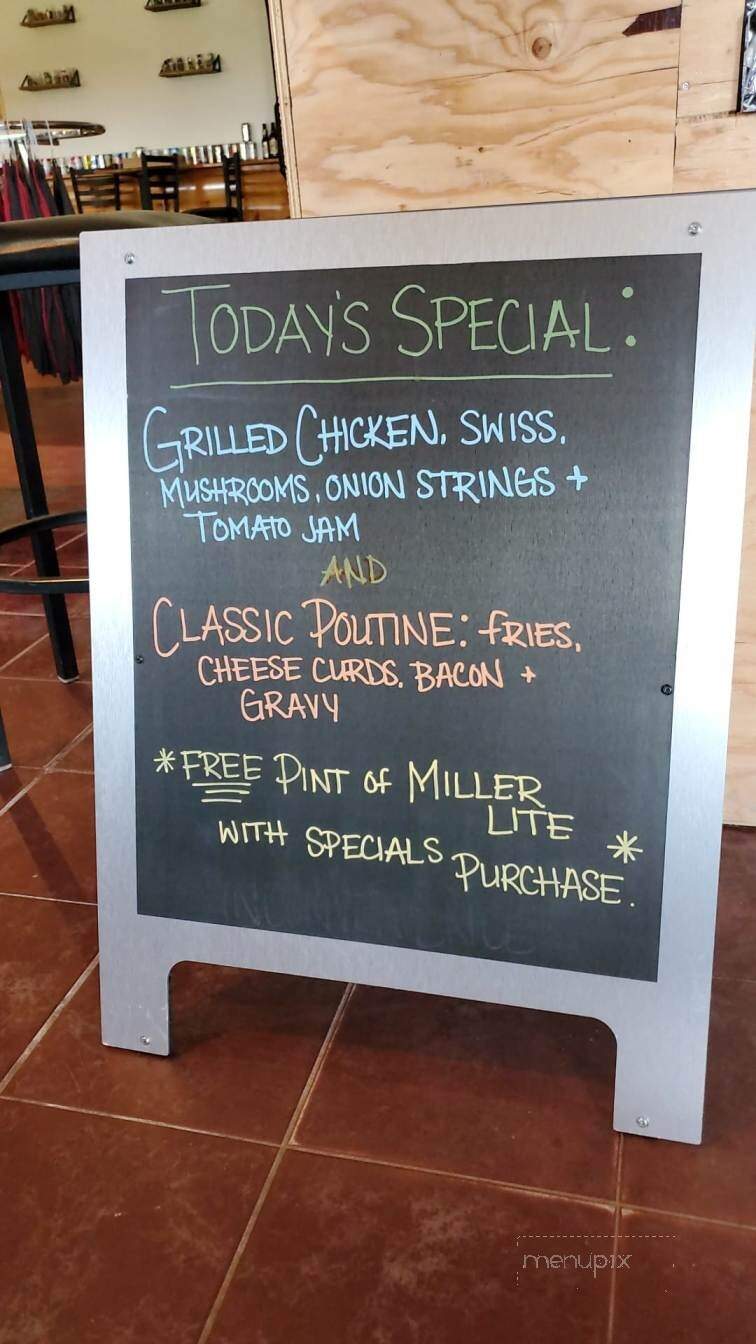 TODAY'S SPECIAL:
GRILLED CHICKEN, SWISS,
MUSHROOMS, ONION STRINGS +
TOMATO JAM
AND
CLASSIC POUTINE: FRIES,
CHEESE CURDS, BACON +
GRAVY
*FREE PINT OF MILLER
LITE
WITH SPECIALS PURCHASE. *
menupix